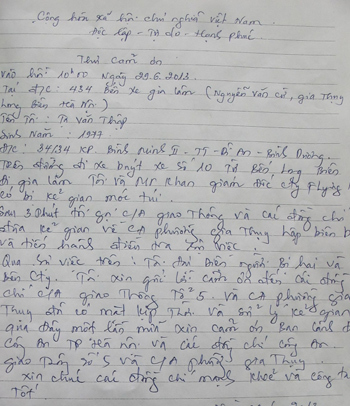 Cộng hòa xã hội chủ nghĩa Việt Nam
Độc lập - Tự do - Hạnh phúc
Thư Cảm ơn
Vào hồi 10h00 Ngày 29.6.2013.
Tại Đ/C: 434 Bến xe gia lâm (Nguyễn văn cừ, gia Thụy
Long Biên Hà Nội)
Tên Tôi: Tạ Văn Thập
Sinh Năm: 1977
Đ/C: 34/34 KP. Bình Minh II - TT - Dĩ An - Bình Dương.
Trên đường đi xe buýt xe số 10 Từ Long biên
Đi gia lâm Tôi và Mr Khan giám đốc cty
Có bị kẻ gian móc túi.
Sau 3 Phút thì gọi C/A giao Thông và các đồng chí
đưa kẻ gian về CA phường gia Thụy lập biên b
và tiến hành điều tra sự việc.
Qua sự việc trên: Tôi đại diện người Bị hại và
bên Cty. Tôi xin gửi lời cảm ơn đến các đồng
chí C/A giao Thông Tổ 5. Và CA phường gia
Thụy đã có mặt kịp Thời và xử lý kẻ gian
qua đây một lần nữa xin cảm ơn Ban lãnh đ
Công An TP Hà Nội và các đồng chí công An
giao Thông số 5 và C/A phường gia Thụy.
Xin chúc các đồng chí mạnh khoẻ và công tá
Tốt